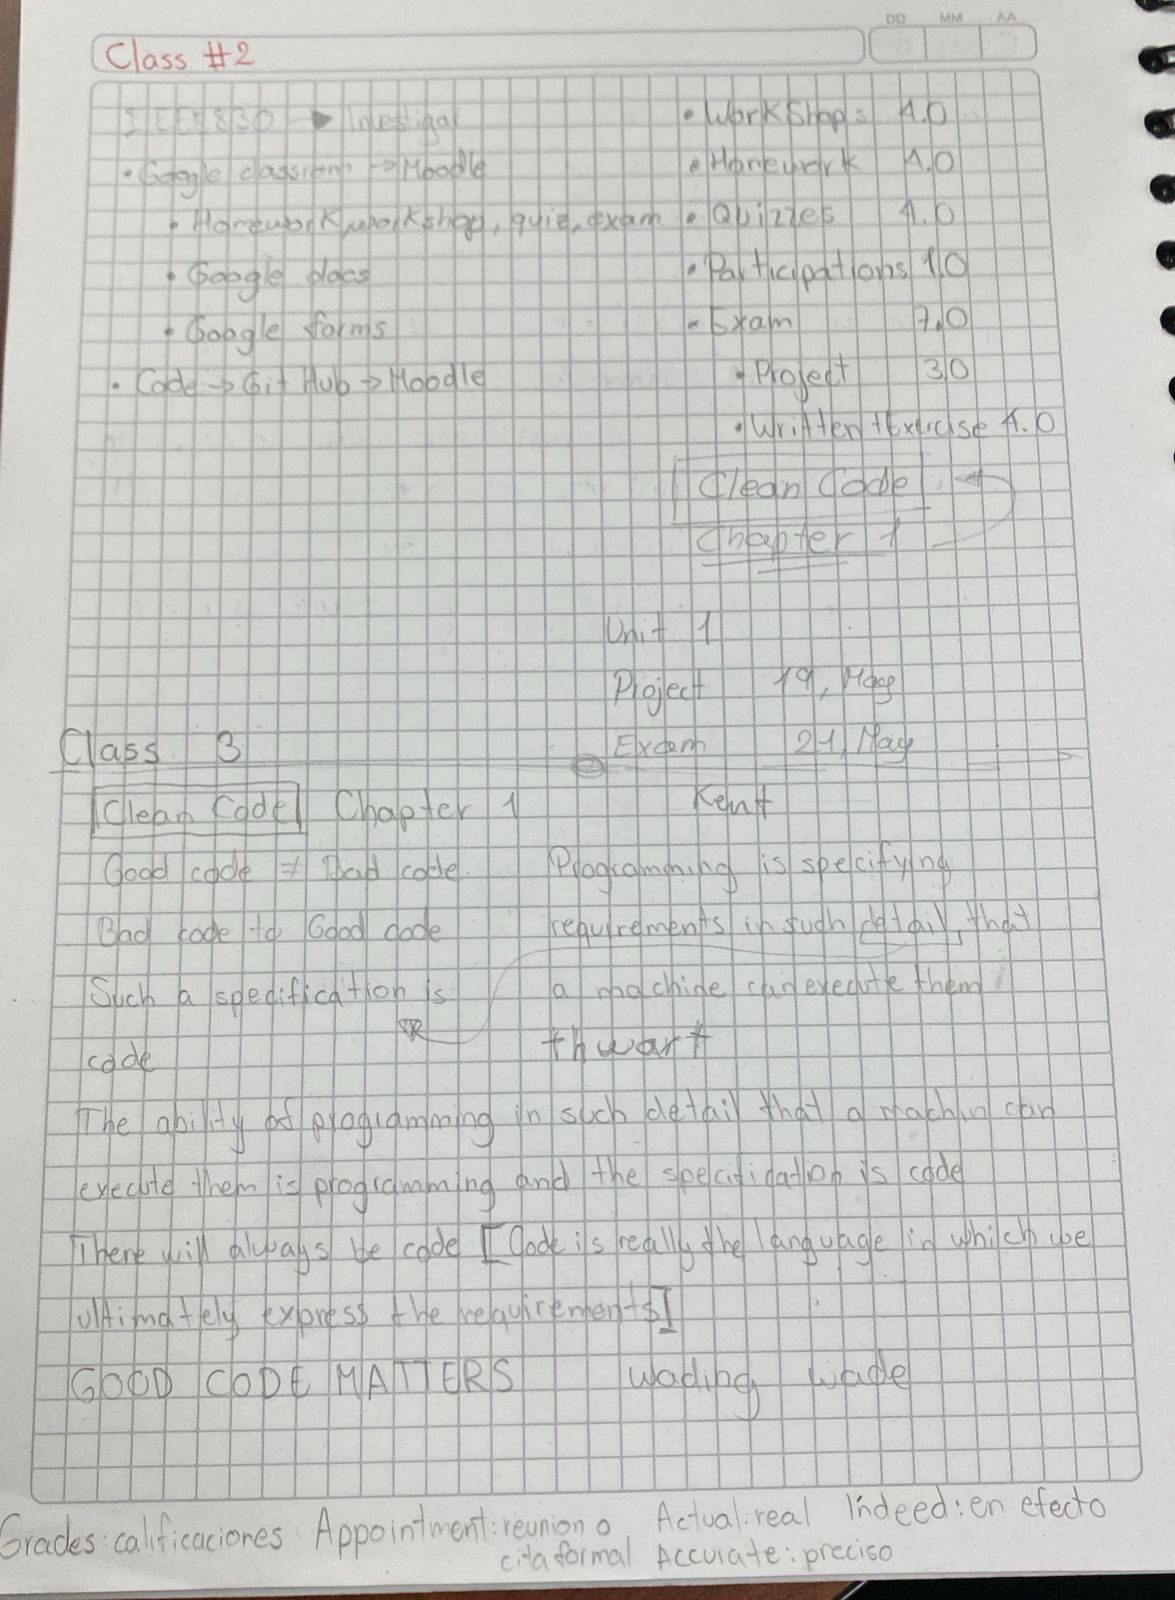 DD MM AA
Class #2
IEEE830 → Investigar
• Google classrom → Moodle
• Homework, workshop, quie, exam
• Google docs
• Google forms
• Code → Git Hub → Moodle
• WorkShops 1.0
• Homework 1.0
• Quizzes 1.0
• Participations 1.0
- Exam 7.0
• Project 3.0
• Written + Exercise 4.0
Clean Code
Chapter 1
Unit 1
Project 19, May
Exam 21, May
Class 3
Clean Code Chapter 1
Good code ≠ Bad code
Bad code to Good code
Such a specification is
code
Kent
Programming is specifying
requirements in such detail, that
a machine can execute them
thwart
The ability of programming in such detail that a machin can
execute them is programming and the specification is code
There will always be code [Code is really the language in which we
ultimately express the requirements]
GOOD CODE MATTERS wading wade
Grades: calificaciones Appointment: reunion o Actual: real Indeed: en efecto
cita formal Accurate: preciso